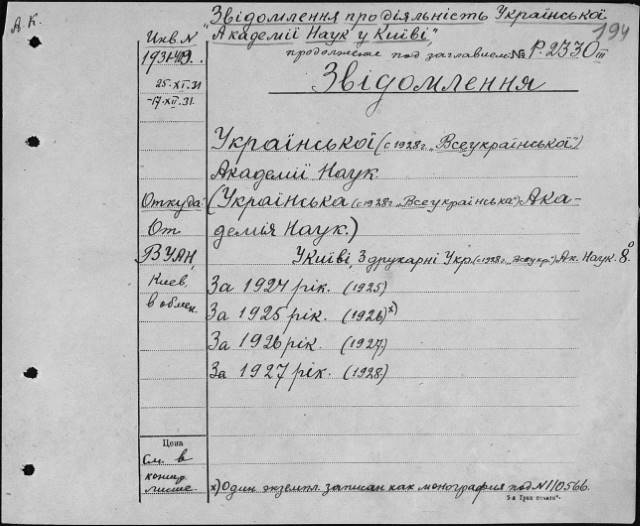 А. К.
Звідомлення про діяльність Української
"Академії Наук у Київі",
194
продолжение под заглавием:
№ Р-2330 III
Инв. N
1931-
25-XI-31
-17-XII-31.
Звідомлення
Української (с 1928 г. "Всеукраїнської")
Академії Наук
Откуда:
(Українська (с 1928 г. "Всеукраїнська") Ака-
От
демія Наук.)
ВУАН,
У Київі, З друкарні Укр. (с 1928 г. "Всеукр.") Ак. Наук. 8°
Киев,
За 1924 рік. (1925)
в обмен.
За 1925 рік. (1926) х)
За 1926 рік. (1927)
За 1927 рік. (1928)
Цена
См. в
листе
х) Один экземпл. записан как монография под N 110566.